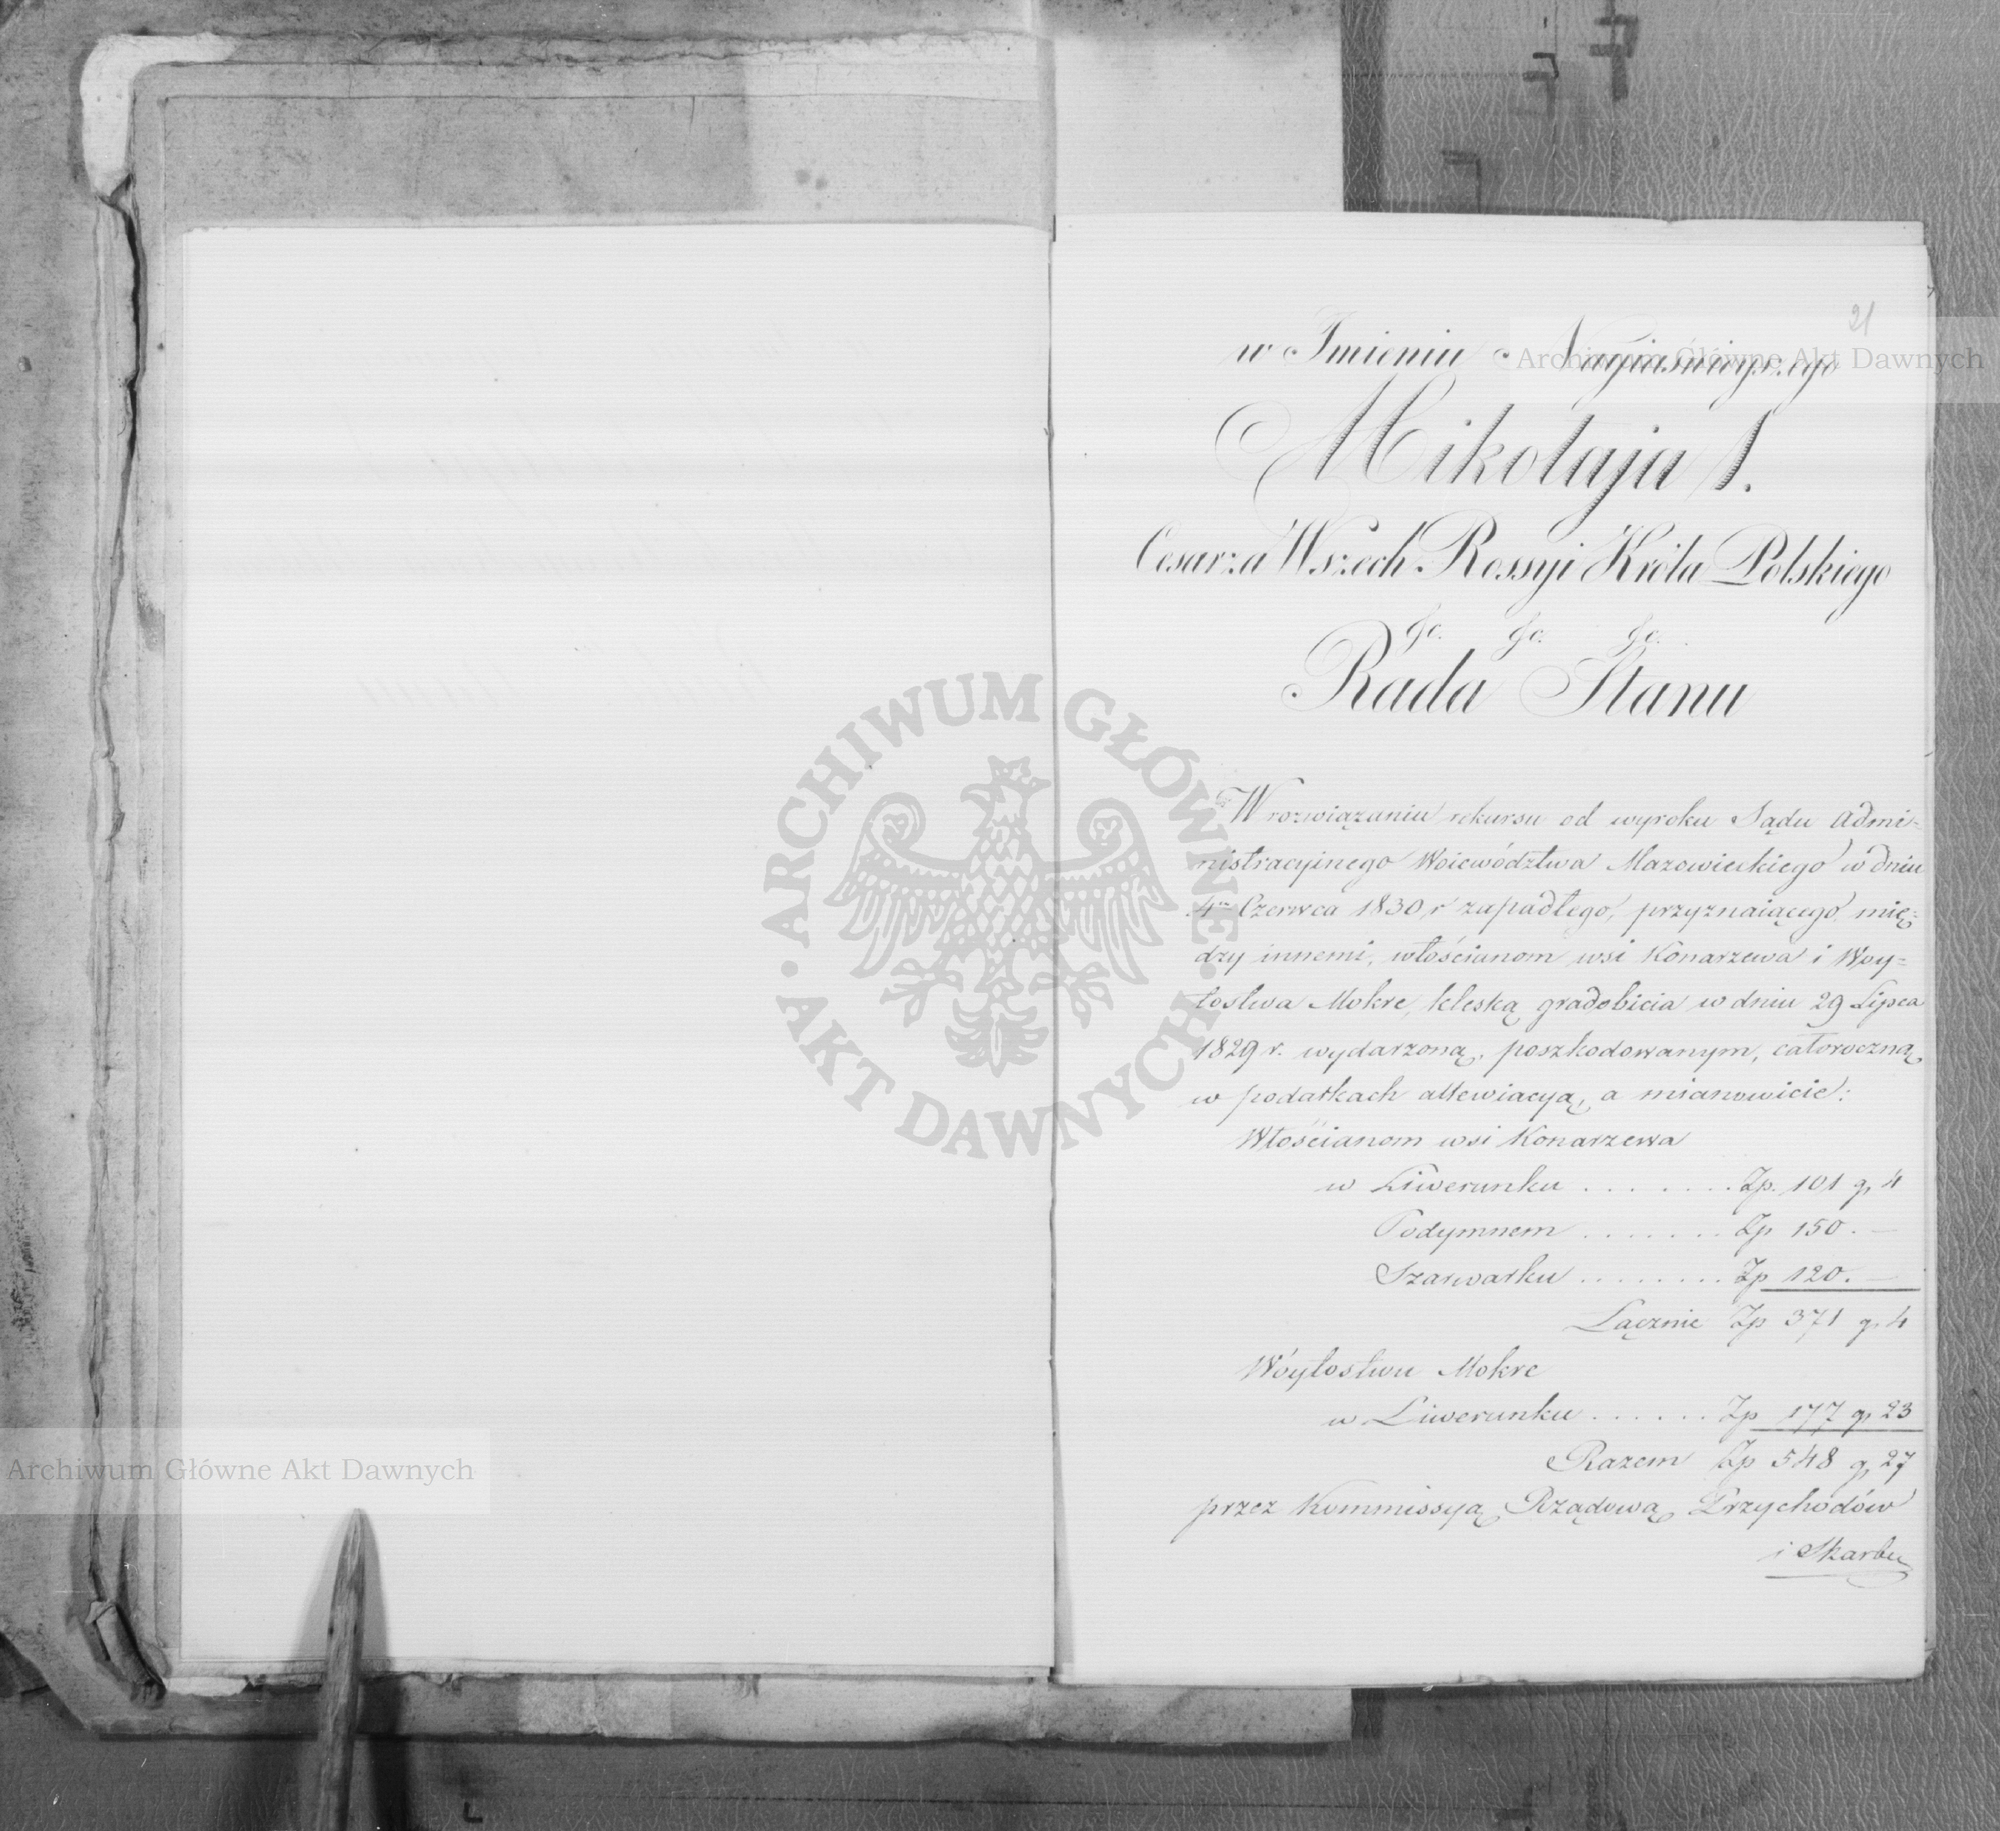 21
w Imieniu Nayiaśnieyszego
Mikołaja I.
Cesarza Wszech Rossyi Króla Polskiego
&c. &c. &c.
Rada Stanu
W rozwiązaniu rekursu od wyroku Sądu Admi-
nistracyinego Woiewództwa Mazowieckiego w dniu
4m Czerwca 1830 r zapadłego, przyznaiącego, mię-
dzy innemi, włościanom wsi Konarzewa i Woy-
tostwa Mokre, klęską gradobicia w dniu 29 Lipca
1829 r. wydarzoną, poszkodowanym, całoroczną
w podatkach allewiacyą, a mianowicie:
Włościanom wsi Konarzewa
w Liwerunku . . . . . . . Zp. 101 g. 4
Podymnem . . . . . . . Zp 150. —
Szarwarku . . . . . . . . Zp 120. —
Łącznie Zp 371 g. 4
Wóytostwu Mokre
w Liwerunku . . . . . . Zp 177 g. 23
Razem Zp 548 g. 27
przez Kommissyą Rządową Przychodów
i Skarbu
Archiwum Główne Akt Dawnych
ARCHIWUM GŁÓWNE AKT DAWNYCH
Archiwum Główne Akt Dawnych